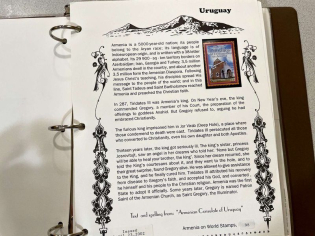 Uruguay
Armenia is a 5000-year-old nation. Its people
belong to the Aryan race; its language is of
Indoeuropean origin, and is written with a 38-letter
alphabet. Its 29.800 sq. km territory borders on
Azerbaijan, Iran, Georgia and Turkey. 3.5 million
Armenians dwell in the country, and about another
3.5 million form the Armenian Diaspora. Following
Jesus Christ's teaching, his disciples spread the
message to the people of the world; and in this
line, Saint Tadeus and Saint Bartholomew reached
Armenia and preached the Christian faith.
In 287, Tiridates III was Armenia's king. On New Year's eve, the king
commanded Gregory, a member of his Court, the preparation of the
offerings to goddess Anahid. But Gregory refused to, arguing he had
embraced Christianity.
The furious king imprisoned him in Jor Virab (Deep Hole), a place where
those condemned to death were cast. Tiridates III persecuted all those
who converted to Christianity, even his own daughter and both Apostles.
Thirteen years later, the king got seriously ill. The king's sister, princess
Josrovidujt, saw an angel in her dreams who told her, "None but Gregory
will be able to heal your brother, the king". Since her dream recurred, she
told the king's counselors about it, and they went to the hole, and to
their great surprise, found Gregory alive. He was allowed to give assistance
to the King, and he finally cured him. Tiridates III attributed his recovery
from disease to Gregory's faith, and accepted his God, and converted
he himself and his people to the Christian religion. Armenia was the first
State to adopt it officially. Some years later, Gregory is named Patron
Saint of the Armenian Church, as Saint Gregory, the Illuminator.
Text and spelling from: "Armenian Cathedrals of Uruguay"
Issued
2002
Armenia on World Stamps,